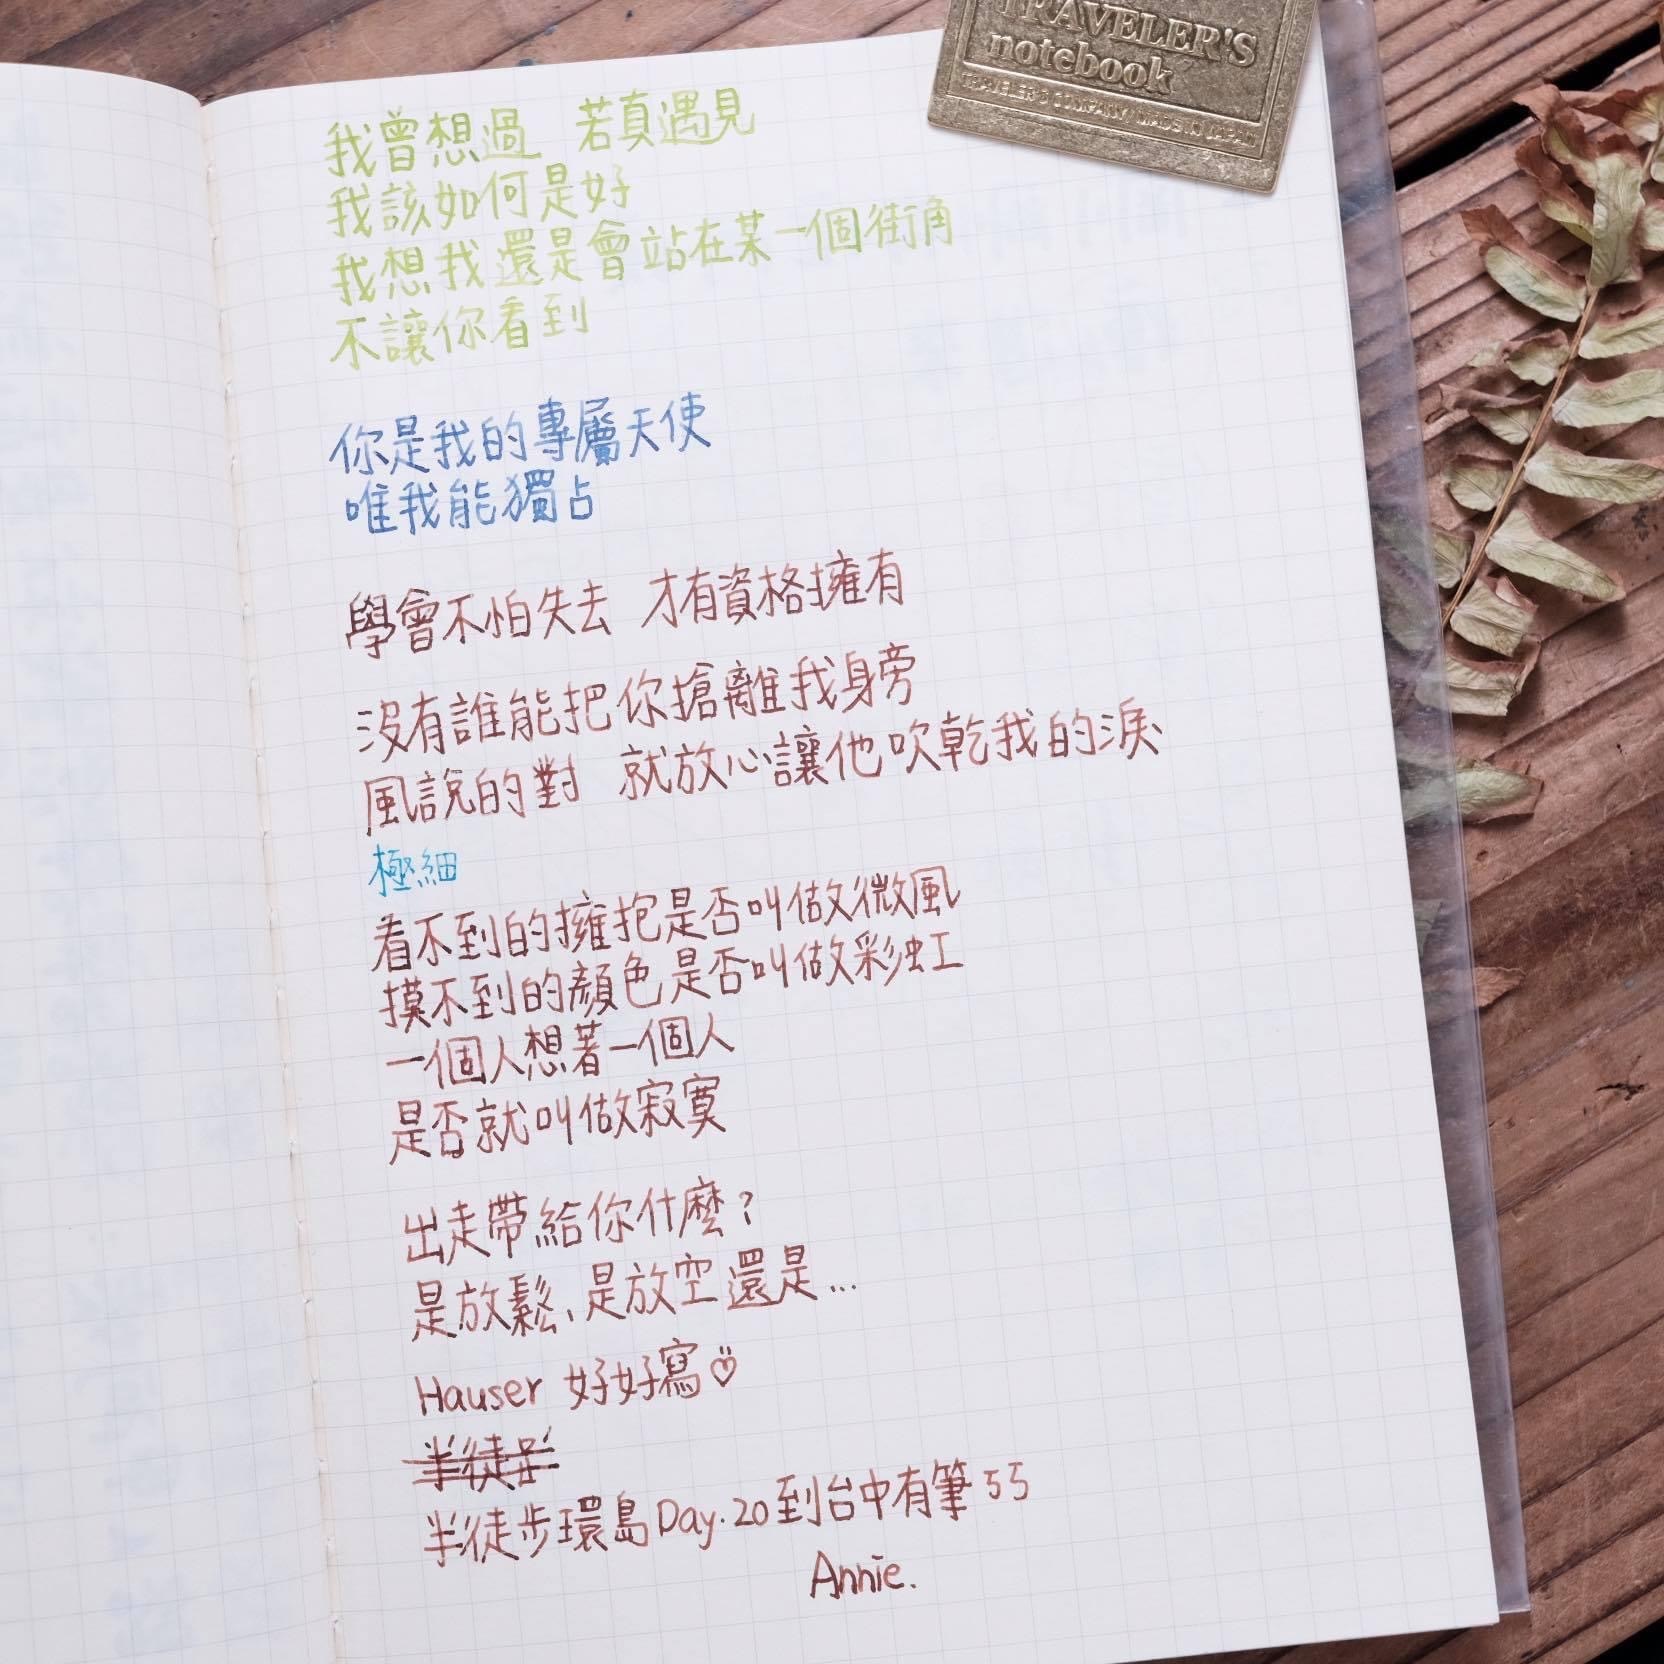 TRAVELER'S
notebook
TRAVELER'S COMPANY / MADE IN JAPAN
我曾想過 若真遇見
我該如何是好
我想我還是會站在某一個街角
不讓你看到
你是我的專屬天使
唯我能獨占
學會不怕失去 才有資格擁有
沒有誰能把你搶離我身旁
風說的對 就放心讓他吹乾我的淚
極細
看不到的擁抱是否叫做微風
摸不到的顏色是否叫做彩虹
一個人想著一個人
是否就叫做寂寞
出走帶給你什麼?
是放鬆、是放空還是...
Hauser 好好寫♡
半徒步
半徒步環島Day.20到台中有筆ㄎㄎ
Annie.